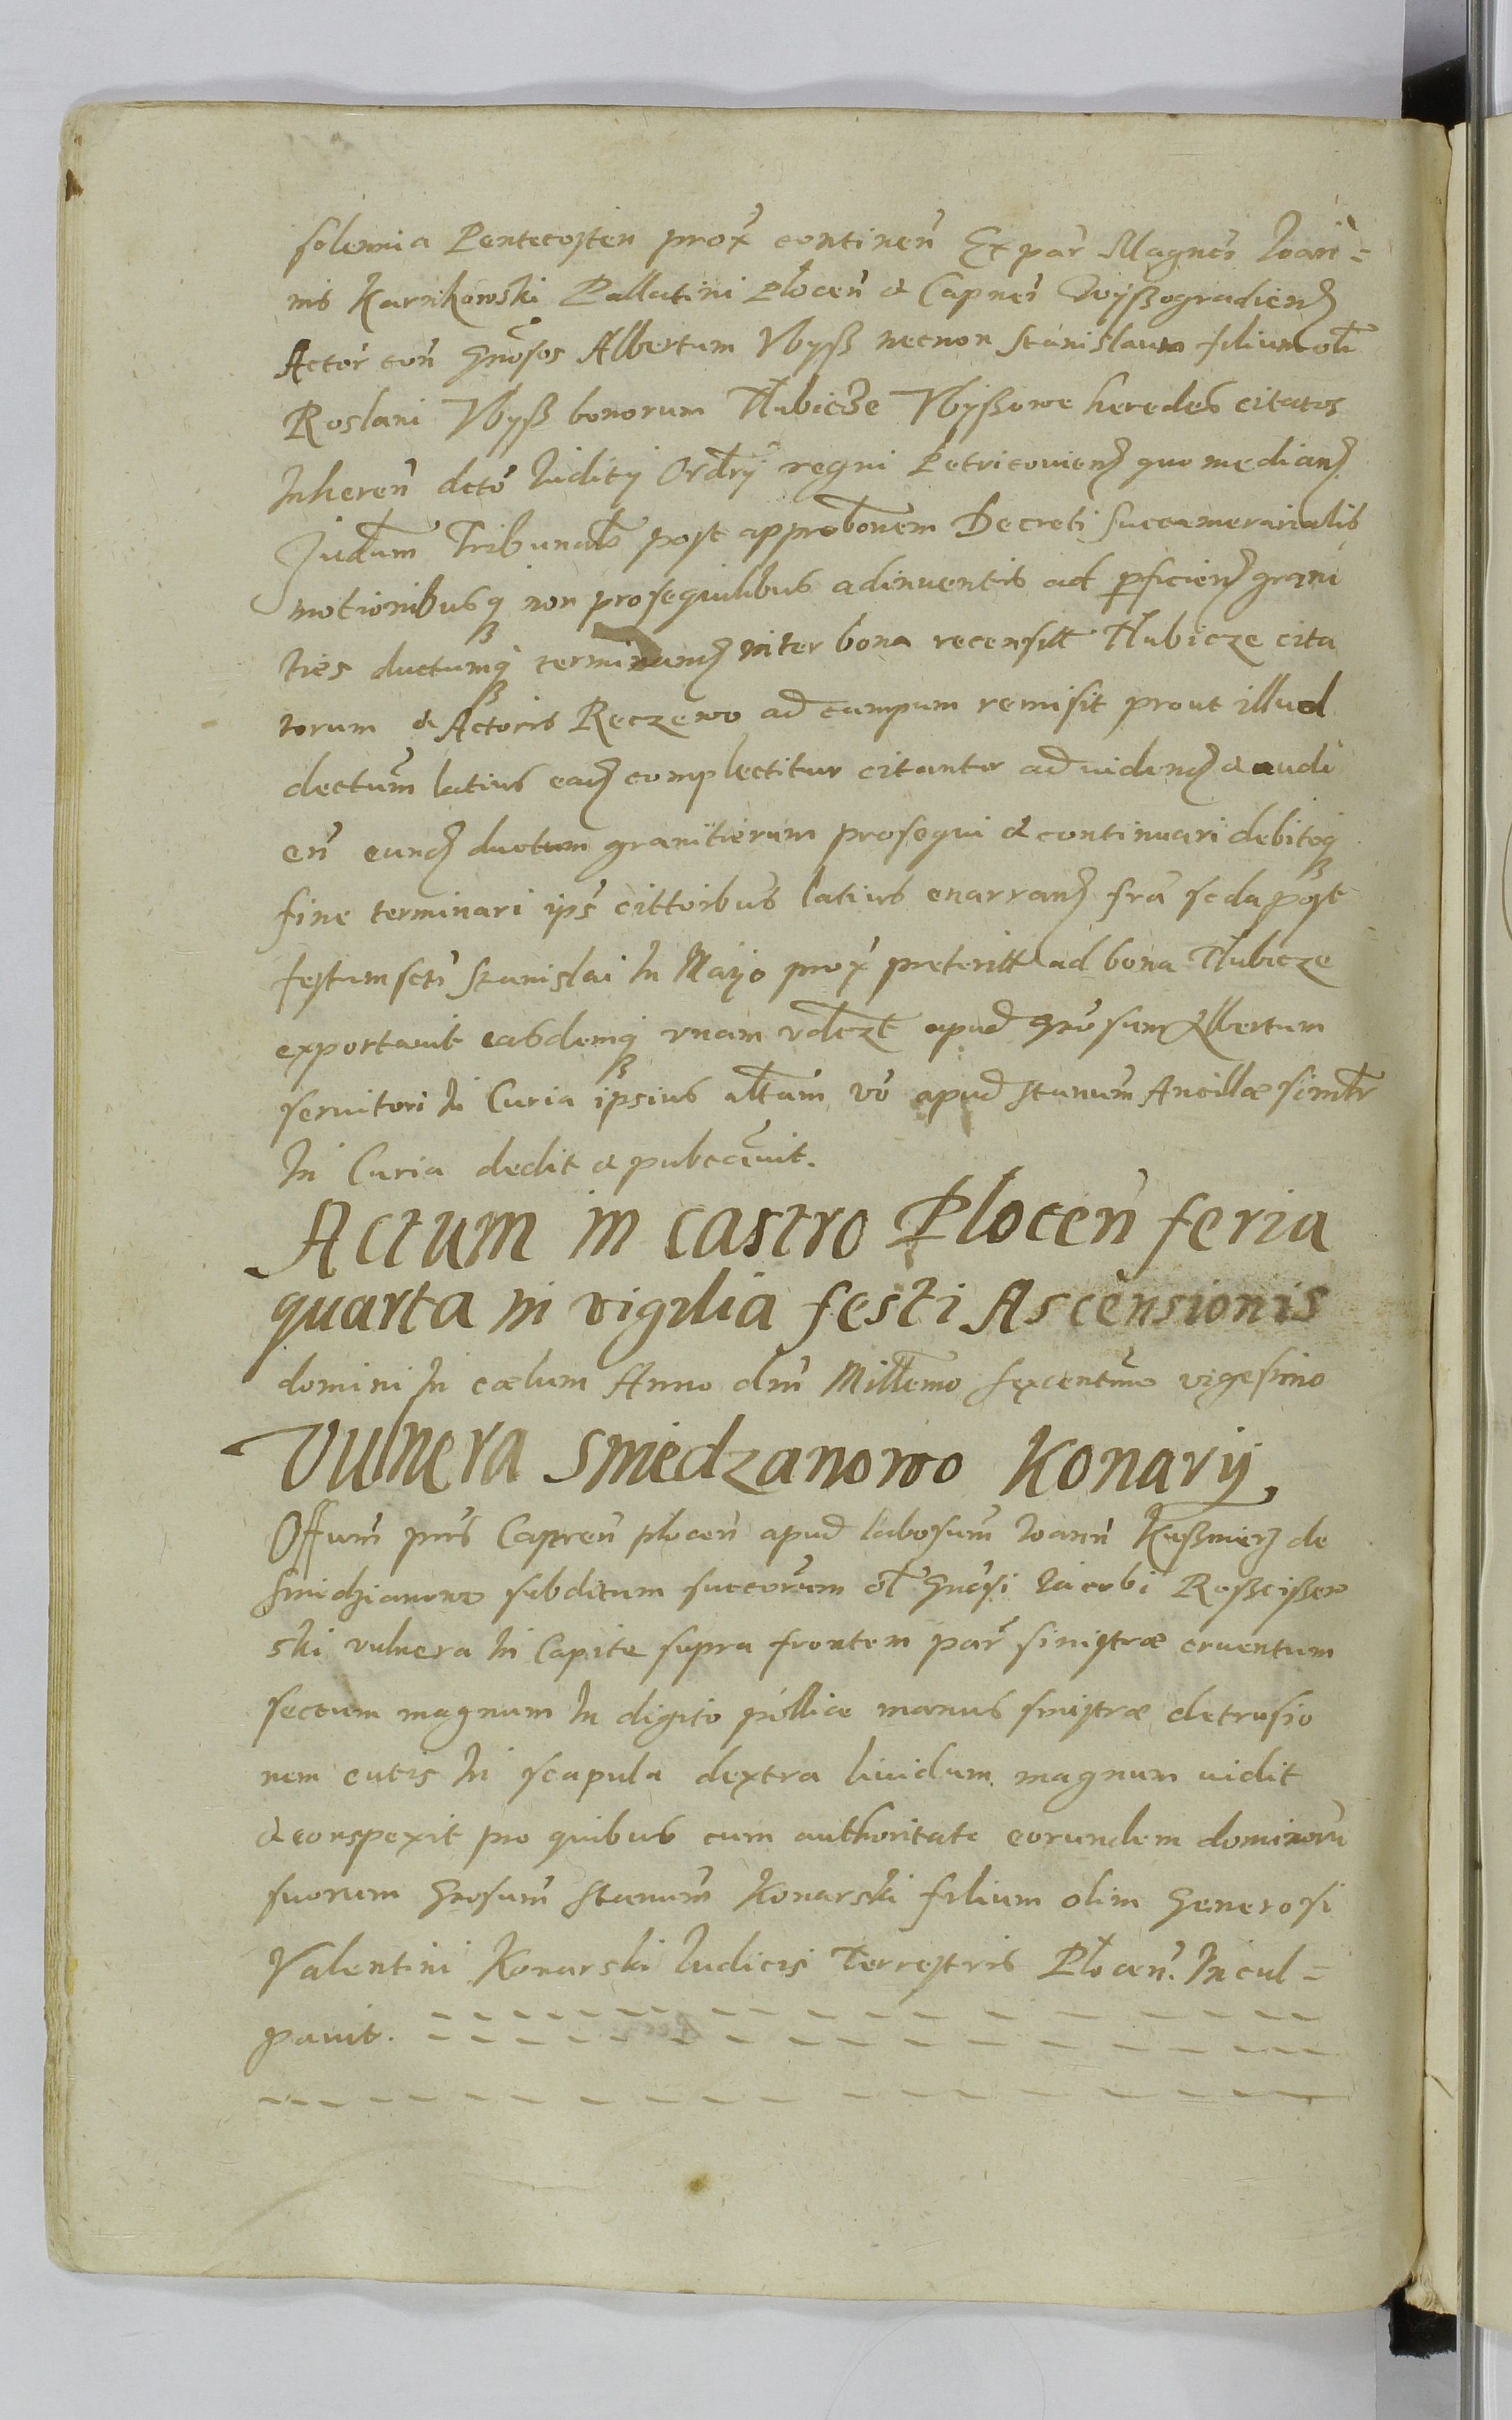 solennia Pentecosten prox continen Ex par Magnci Joan=
nis Karnkowski Pallatini Plocen & Capnei Wyßogradien
Actor con Gnosos Albertum Vbyß necnon Stanislaum filium oli
Roslani Vbyß bonorum Hubicze Vbyßowe heredes citatos
Inheren dcto Juditij Ordrij regni Petricovien quo median
Judum Tribunals post approbonem Decreti succamerarialis
motionibusq non prosequilibus adinuentis ad pficien grani
ties ductumq terminan inter bona recensitt Hubicze cita
torum & Actoris Reczewo ad campum remisit prout illud
dectum latius ead complectitur citantur ad uidend & audi
en eund ductum granitierum prosequi & continuari debitoq
fine terminari ips cittoibus latius enarran fra scda post
festum scti Stanislai In Mayo prox preteritt ad bona Hubicze
exportauit easdemq vnam vdczt apud Gnosum Albertum
seruitori In Curia ipsius altam vo apud Stanum Ancillæ simtr
In Curia dedit & pubcauit.
Actum in castro Plocen feria
quarta in vigilia festi Ascensionis
domini In cælum Anno dni Millemo sexcentmo vigesimo
Vulnera Smiedzanowo Konary
Offum pns Capnen plocen apud labosum Joann Kußmierz de
Smidzianowo subditum succorum ol Gnosi Jacobi Roßcißew
ski vulnera In Capite supra frontem par sinistræ cruentum
sectum magnum In digito pollice manus sinistræ detrusio
nem cutis In scapula dextra liuidum magnum uidit
& conspexit pro quibus cum authoritate eorundem dominoru
suorum Gnosum Stanum Konarski filium olim Generosi
Valentini Konarski Judicis Terrestris Plocen. Incul=
pauit.